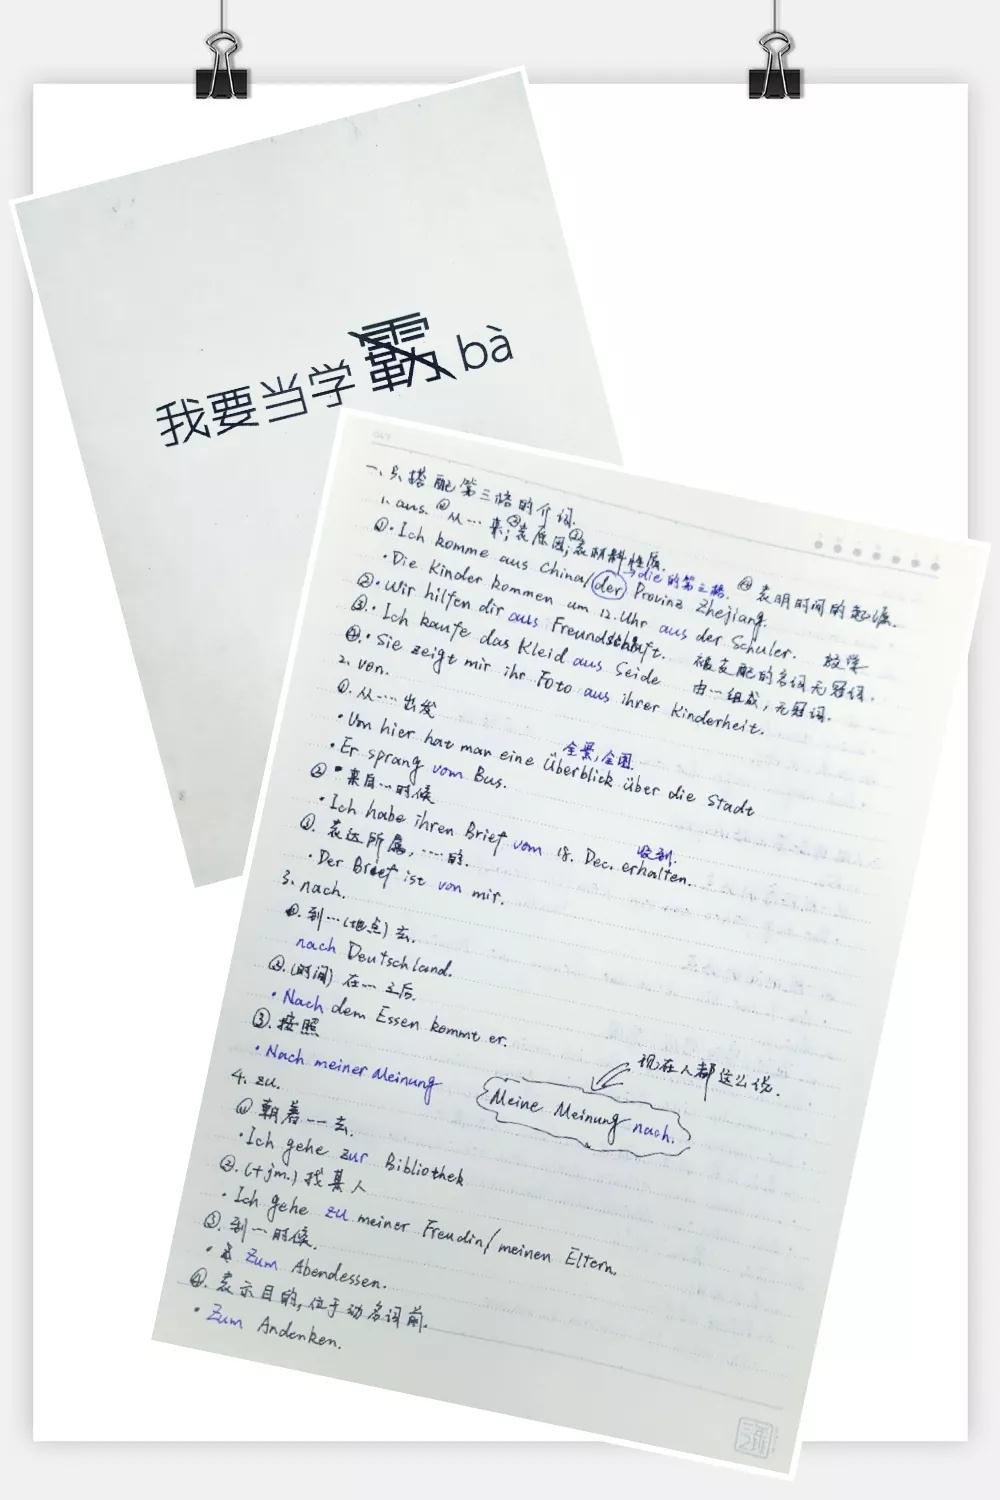 我要当学霸 bà
一、只搭配第三格的介词.
1. aus. ①从…来; ②表原因; ③表材料性质. ④表明时间的起源.
①·Ich komme aus China/der Provinz Zhejiang.
→die的第三格.
·Die Kinder kommen um 12. Uhr aus der Schuler. 放学
②·Wir hilfen dir aus Freundschaft. 被支配的名词无冠词.
③·Ich kaufe das Kleid aus Seide 由…组成,无冠词.
④·Sie zeigt mir ihr Foto aus ihrer Kinderheit.
2. von.
①. 从……出发
·Von hier hat man eine Überblick über die Stadt
全景,全图.
·Er sprang vom Bus.
② 来自…时候
·Ich habe ihren Brief vom 18. Dec. erhalten.
收到.
③. 表达所属,……的.
·Der Brief ist von mir.
3. nach.
①. 到…(地点)去.
nach Deutschland.
②.(时间) 在…之后.
·Nach dem Essen kommt er.
③.按照
·Nach meiner Meinung
现在人都这么说.
Meine Meinung nach.
4. zu.
① 朝着……去.
·Ich gehe zur Bibliothek
②.(+jm.)找某人
·Ich gehe zu meiner Freudin/meinen Eltern.
③. 到…时候.
· Zum Abendessen.
④. 表示目的,位于动名词前.
·Zum Andenken.